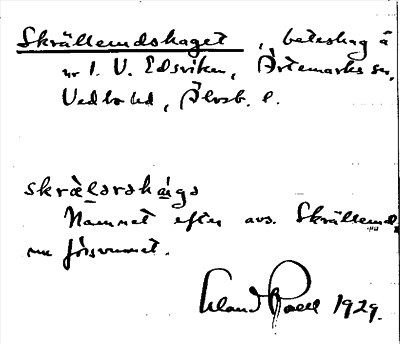 Skrällemdshaget, beteshag å
nr 1. V. Edsviken, Ärtemarks sn,
Vedbo hd, Älvsb. l.
skræl̠ərshá̠gə
Namnet efter avs. Skrällemd,
nu försvunnet.
1929.